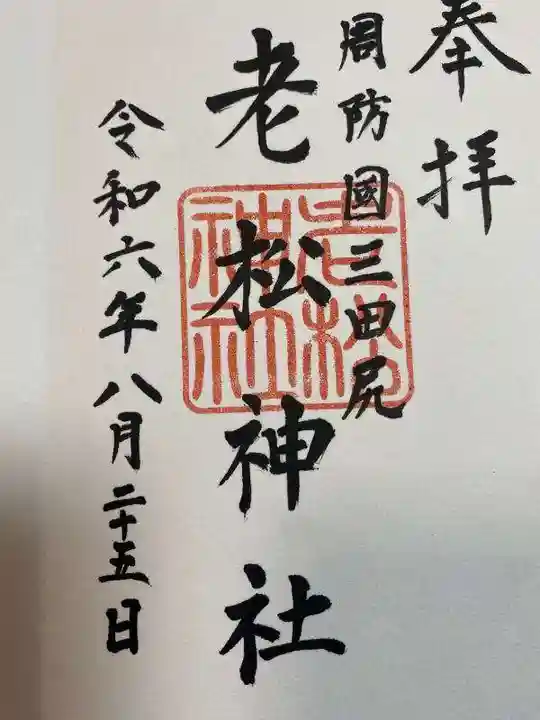 奉拝
周防國三田尻
老松神社
老松神社
令和六年八月二十五日